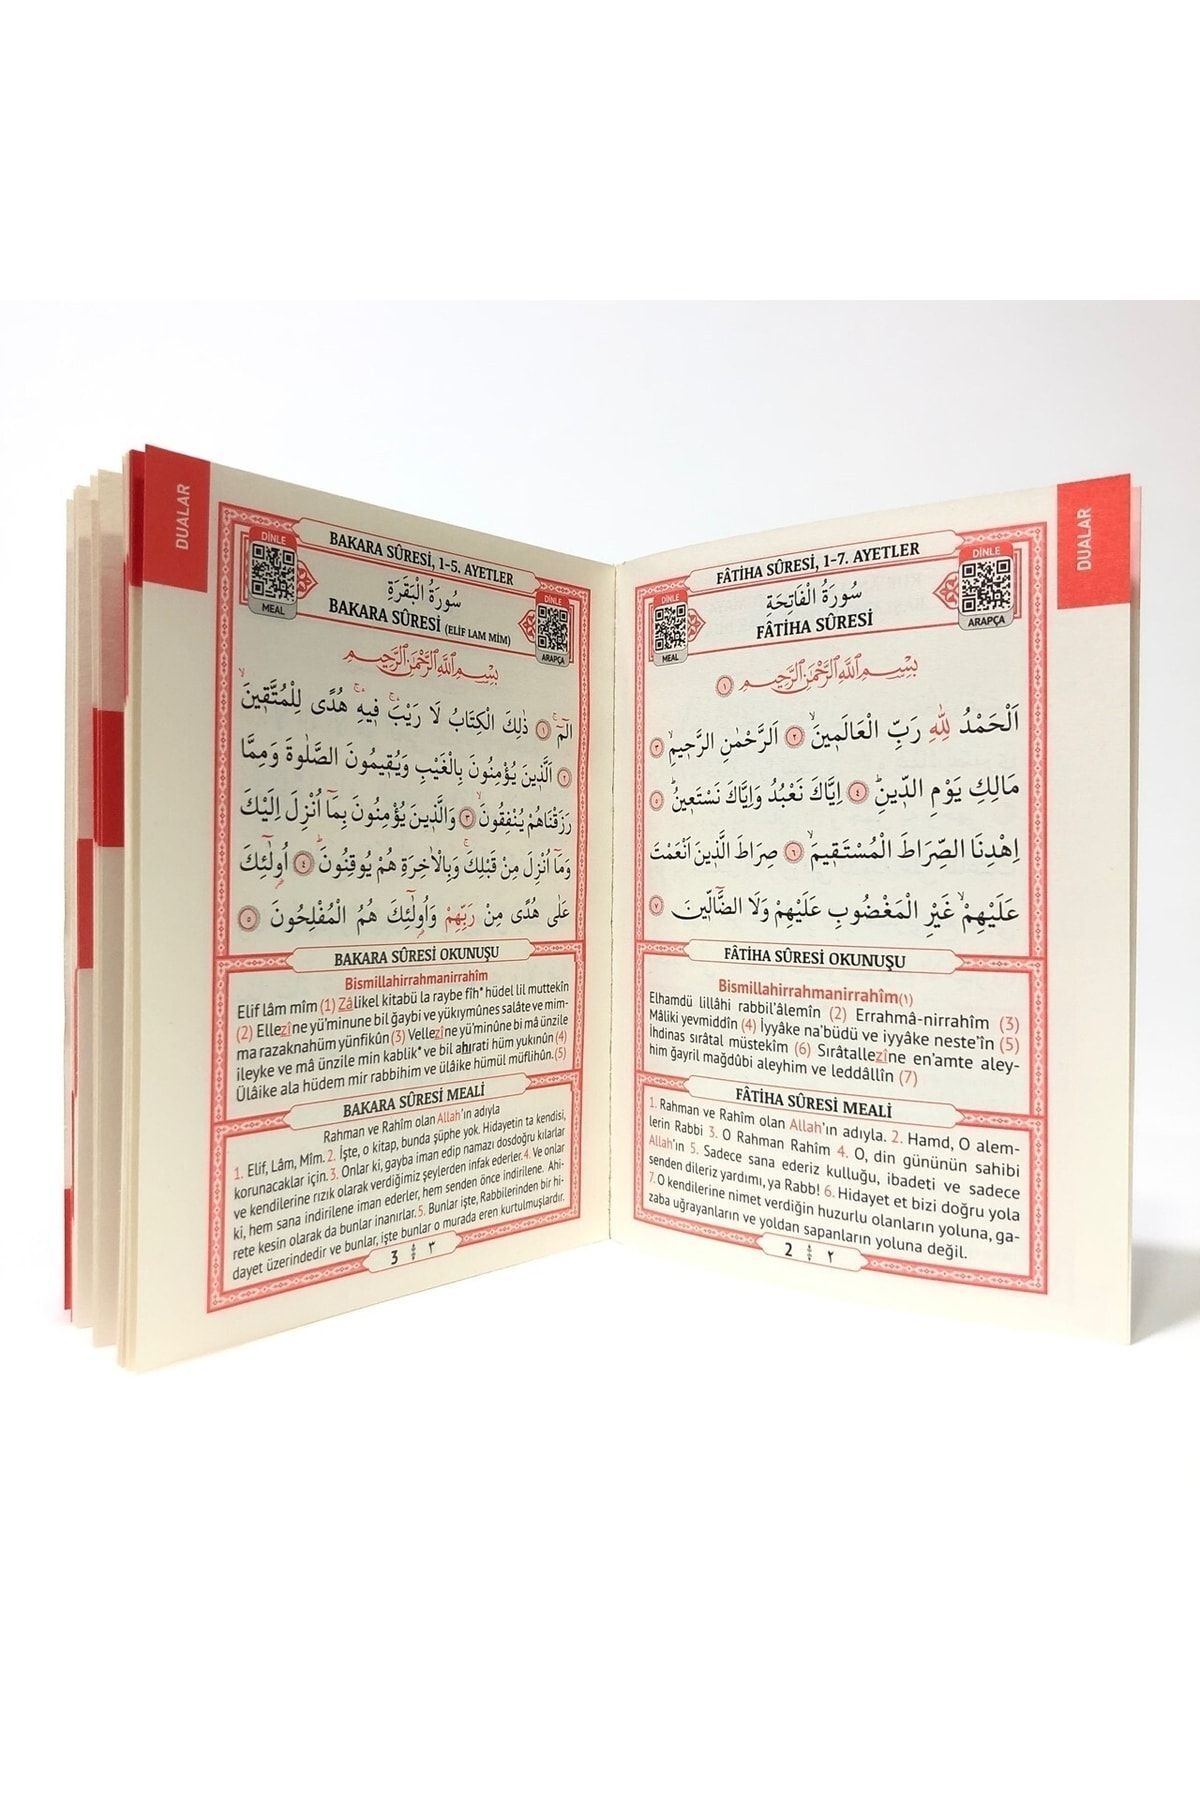 DUALAR
FÂTİHA SÛRESİ, 1-7. AYETLER
DİNLE
ARAPÇA
سُورَةُ الْفَاتِحَةِ
DİNLE
MEAL
FÂTİHA SÛRESİ
بِسْمِ اللّٰهِ الرَّحْمٰنِ الرَّحِيمِ ﴿١﴾
اَلْحَمْدُ لِلّٰهِ رَبِّ الْعَالَمِينَۙ ﴿٢﴾ اَلرَّحْمٰنِ الرَّحِيمِۙ ﴿٣﴾
مَالِكِ يَوْمِ الدِّينِۜ ﴿٤﴾ اِيَّاكَ نَعْبُدُ وَاِيَّاكَ نَسْتَعِينُۜ ﴿٥﴾
اِهْدِنَا الصِّرَاطَ الْمُسْتَقِيمَۙ ﴿٦﴾ صِرَاطَ الَّذِينَ اَنْعَمْتَ
عَلَيْهِمْۙ غَيْرِ الْمَغْضُوبِ عَلَيْهِمْ وَلَا الضَّٓالِّينَ ﴿٧﴾
FÂTİHA SÛRESİ OKUNUŞU
Bismillahirrahmanirrahîm(١)
Elhamdü lillâhi rabbil'âlemîn (2) Errahmâ-nirrahîm (3)
Mâliki yevmiddîn (4) İyyâke na'büdü ve iyyâke neste'în (5)
İhdinas sırâtal müstekîm (6) Sırâtallezîne en'amte aley-
him ğayril mağdûbi aleyhim ve leddâllîn (7)
FÂTİHA SÛRESİ MEALİ
1. Rahman ve Rahîm olan Allah'ın adıyla. 2. Hamd, O alem-
lerin Rabbi 3. O Rahman Rahîm 4. O, din gününün sahibi
Allah'ın 5. Sadece sana ederiz kulluğu, ibadeti ve sadece
senden dileriz yardımı, ya Rabb! 6. Hidayet et bizi doğru yola
7. O kendilerine nimet verdiğin huzurlu olanların yoluna, ga-
zaba uğrayanların ve yoldan sapanların yoluna değil.
2 ٢
DUALAR
BAKARA SÛRESİ, 1-5. AYETLER
DİNLE
MEAL
سُورَةُ الْبَقَرَةِ
DİNLE
ARAPÇA
BAKARA SÛRESİ (ELİF LAM MİM)
بِسْمِ اللّٰهِ الرَّحْمٰنِ الرَّحِيمِ
الٓمٓۚ ﴿١﴾ ذٰلِكَ الْكِتَابُ لَا رَيْبَۚ فِيهِۚ هُدًى لِلْمُتَّقِينَۙ
﴿٢﴾ اَلَّذِينَ يُؤْمِنُونَ بِالْغَيْبِ وَيُقِيمُونَ الصَّلٰوةَ وَمِمَّا
رَزَقْنَاهُمْ يُنْفِقُونَۙ ﴿٣﴾ وَالَّذِينَ يُؤْمِنُونَ بِمَٓا اُنْزِلَ اِلَيْكَ
وَمَٓا اُنْزِلَ مِنْ قَبْلِكَۚ وَبِالْاٰخِرَةِ هُمْ يُوقِنُونَۜ ﴿٤﴾ اُو۬لٰٓئِكَ
عَلٰى هُدًى مِنْ رَبِّهِمْ وَاُو۬لٰٓئِكَ هُمُ الْمُفْلِحُونَ ﴿٥﴾
BAKARA SÛRESİ OKUNUŞU
Bismillahirrahmanirrahîm
Elif lâm mîm (1) Zâlikel kitabü la raybe fîh* hüdel lil muttekîn
(2) Ellezîne yü'minune bil ğaybi ve yükıymûnes salâte ve mim-
ma razaknahüm yünfikûn (3) Vellezîne yü'minûne bi mâ ünzile
ileyke ve mâ ünzile min kablik* ve bil ahırati hüm yukınûn (4)
Ülâike ala hüdem mir rabbihim ve ülâike hümül müflihûn. (5)
BAKARA SÛRESİ MEALİ
Rahman ve Rahîm olan Allah'ın adıyla
1. Elif, Lâm, Mîm. 2. İşte, o kitap, bunda şüphe yok. Hidayetin ta kendisi,
korunacaklar için. 3. Onlar ki, gayba iman edip namazı dosdoğru kılarlar
ve kendilerine rızık olarak verdiğimiz şeylerden infak ederler. 4. Ve onlar
ki, hem sana indirilene iman ederler, hem senden önce indirilene. Ahi-
rete kesin olarak da bunlar inanırlar. 5. Bunlar işte, Rabbilerinden bir hi-
dayet üzerindedir ve bunlar, işte bunlar o murada eren kurtulmuşlardır.
3 ٣